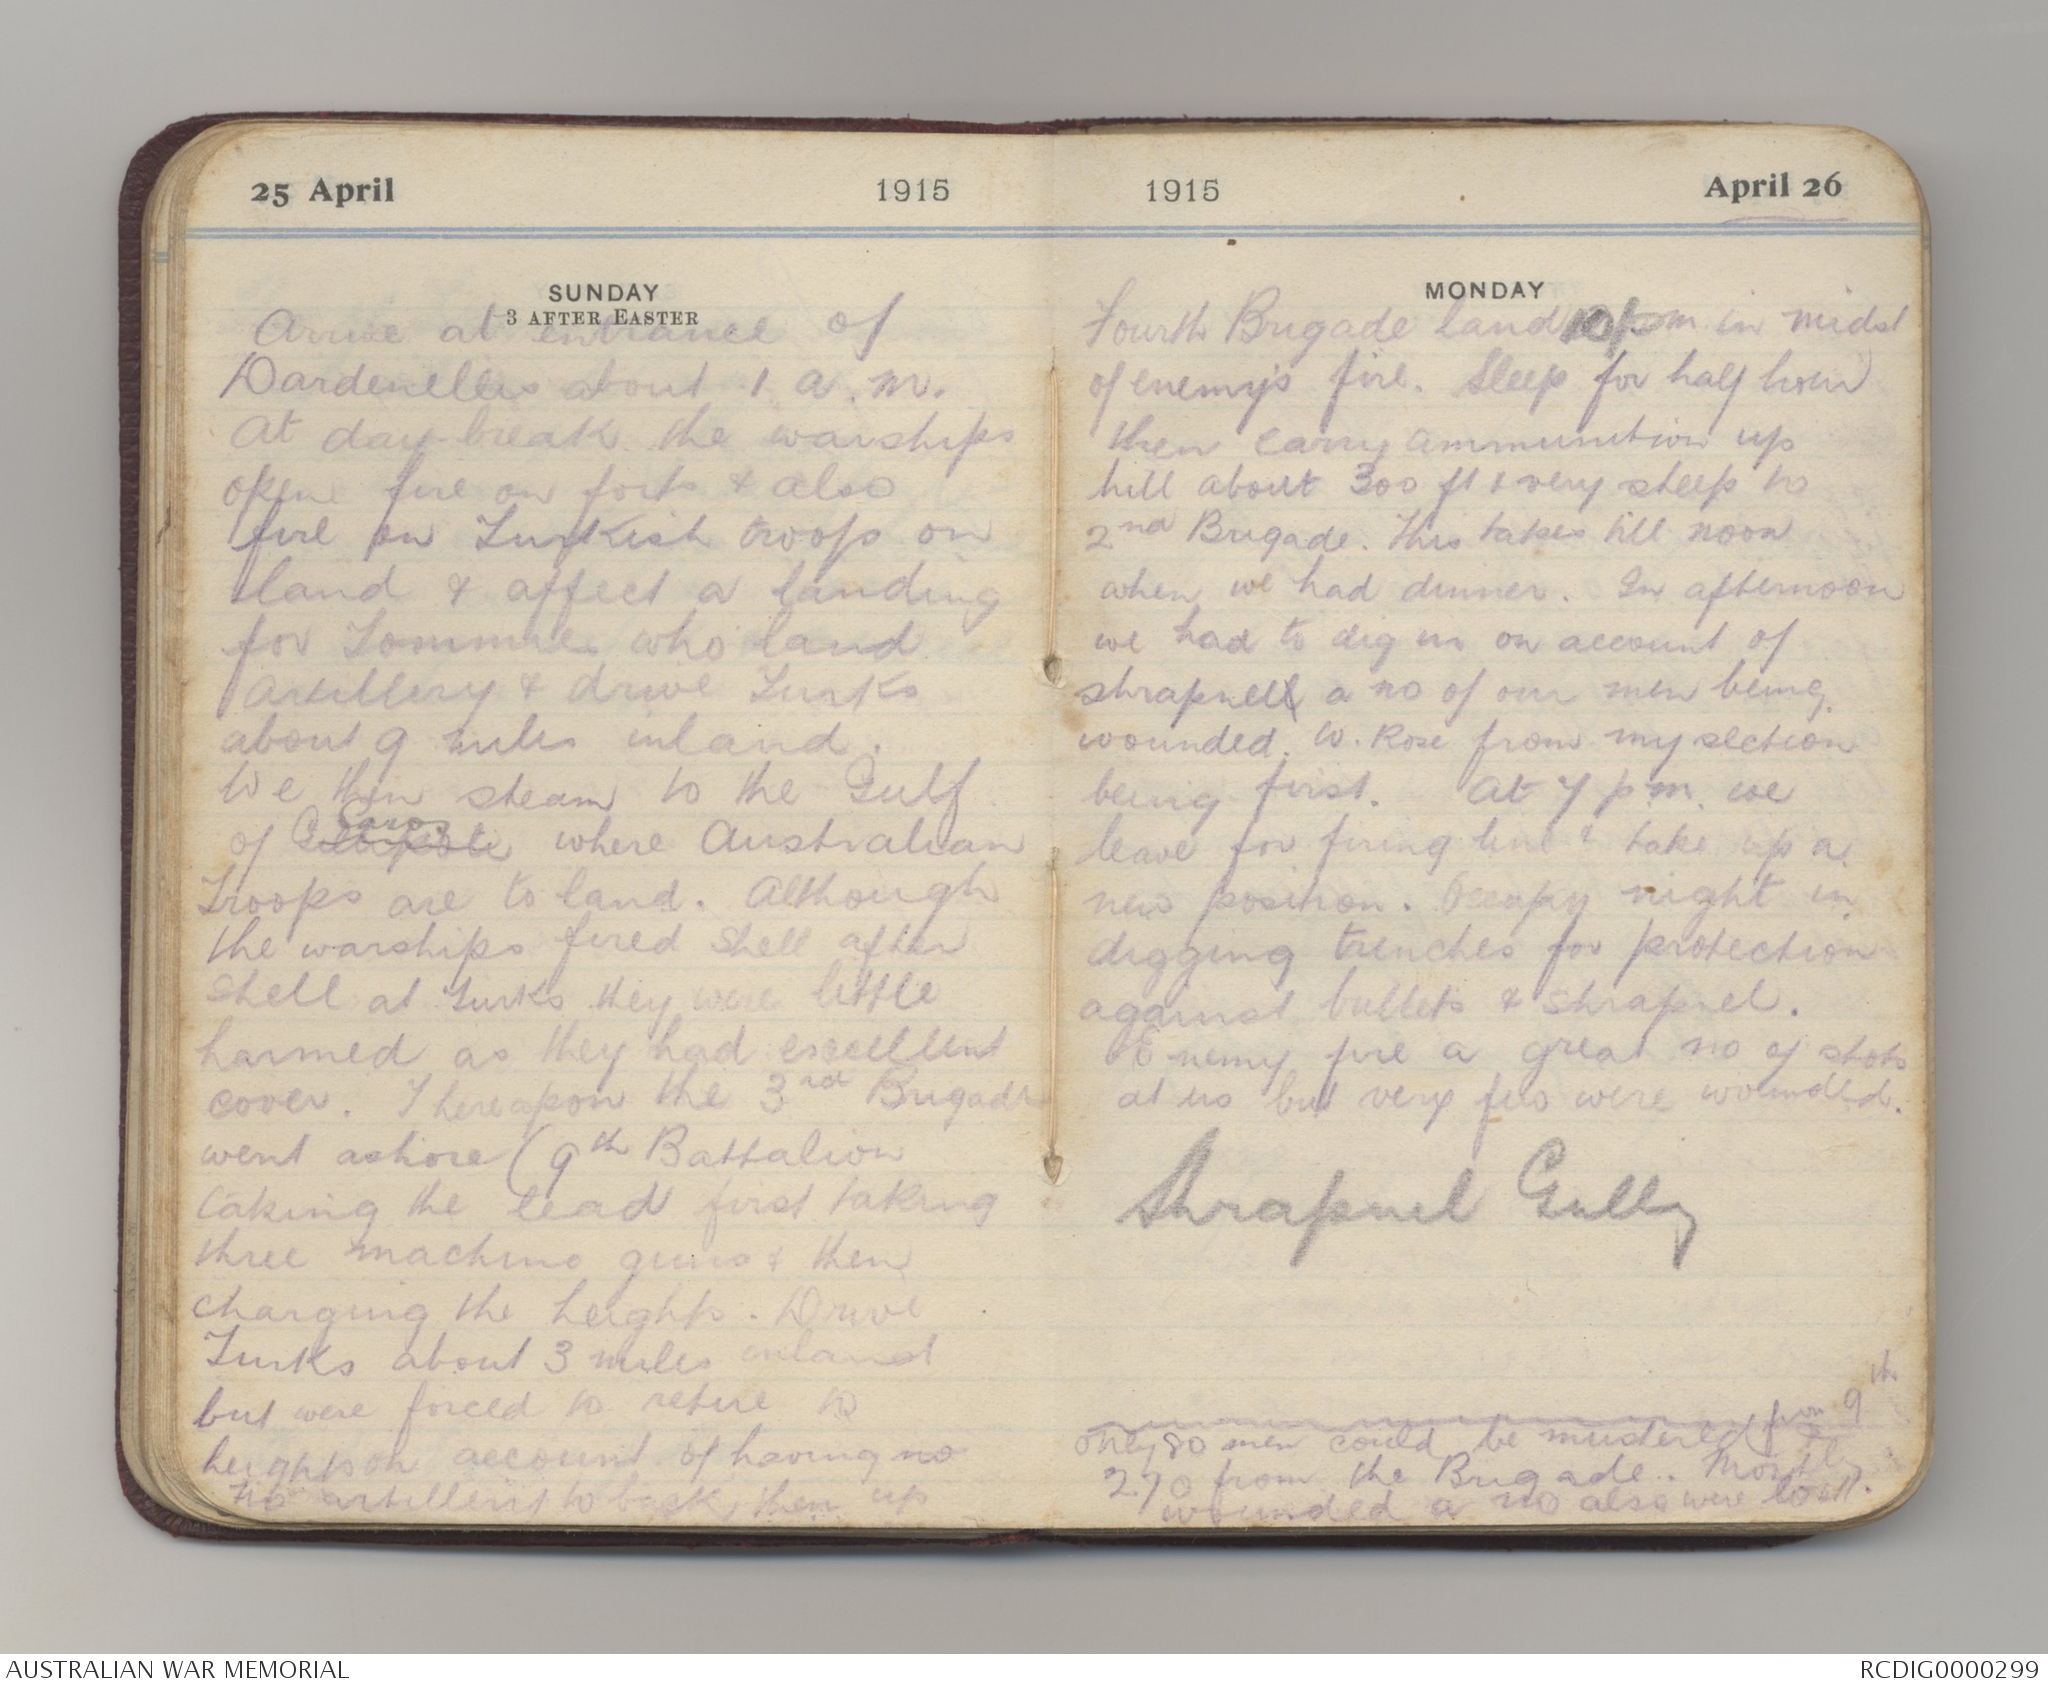 25 April 1915
SUNDAY
3 AFTER EASTER
Arrive at entrance of
Dardenelles about 1 a.m.
At day break the warships
open fire on forts & also
fire on Turkish troops on
land & affect a landing
for Tommies who land
artillery & drive Turks
about 9 miles inland.
We then steam to the Gulf
Saros
of where Australian
Troops are to land. Although
the warships fired shell after
shell at Turks they were little
harmed as they had excellent
cover. Thereupon the 3rd Brigade
went ashore (9th Battalion
taking the lead first taking
three machine guns & then
charging the heights. Drive
Turks about 3 miles inland
but were forced to retire to
heights on account of having no
no artillery to back them up
1915 April 26
MONDAY
Fourth Brigade land 10 pm in midst
of enemy's fire. Sleep for half hour
then carry ammunition up
hill about 300 ft & very steep to
2nd Brigade. This takes till noon
when we had dinner. In afternoon
we had to dig in on account of
shrapnell a no of our men being
wounded. W. Rose from my section
being first. At 7 p.m. we
leave for firing line & take up a
new position. Occupy night in
digging trenches for protection
against bullets & shrapnel.
Enemy fire a great no of shots
at us but very few were wounded.
Shrapnel Gully
only 80 men could be mustered from 9th
270 from the Brigade. Mostly
wounded a no also were lost.
AUSTRALIAN WAR MEMORIAL RCDIG0000299